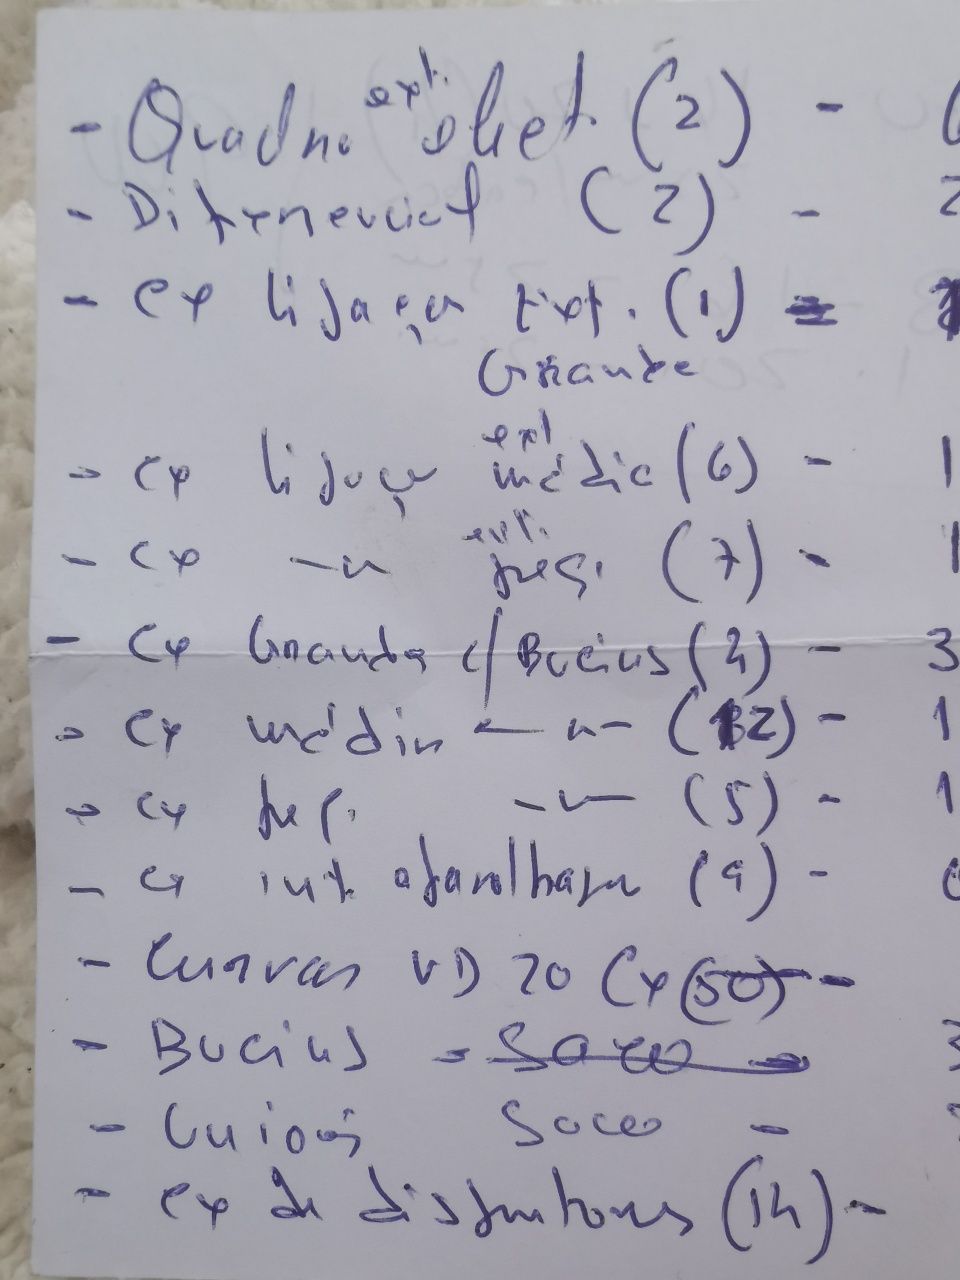 - Quadro ext. elict. (2) - 6
- Diferencial (2) - 2
- cx ligação Ext. (1) =
Grande
- cx ligação ext média (6) - 1
- cx -u- ext. peq. (7) - 1
- cx Grande c/ Bucins (4) - 3
- cx média -u- (12) - 1
- cx peq. -u- (5) - 1
- cx int. (9) -
- Curvas VD 20 Cx (50) -
- Bucins - Saco - 3
- Saco -
- cx de disjuntores (14) -